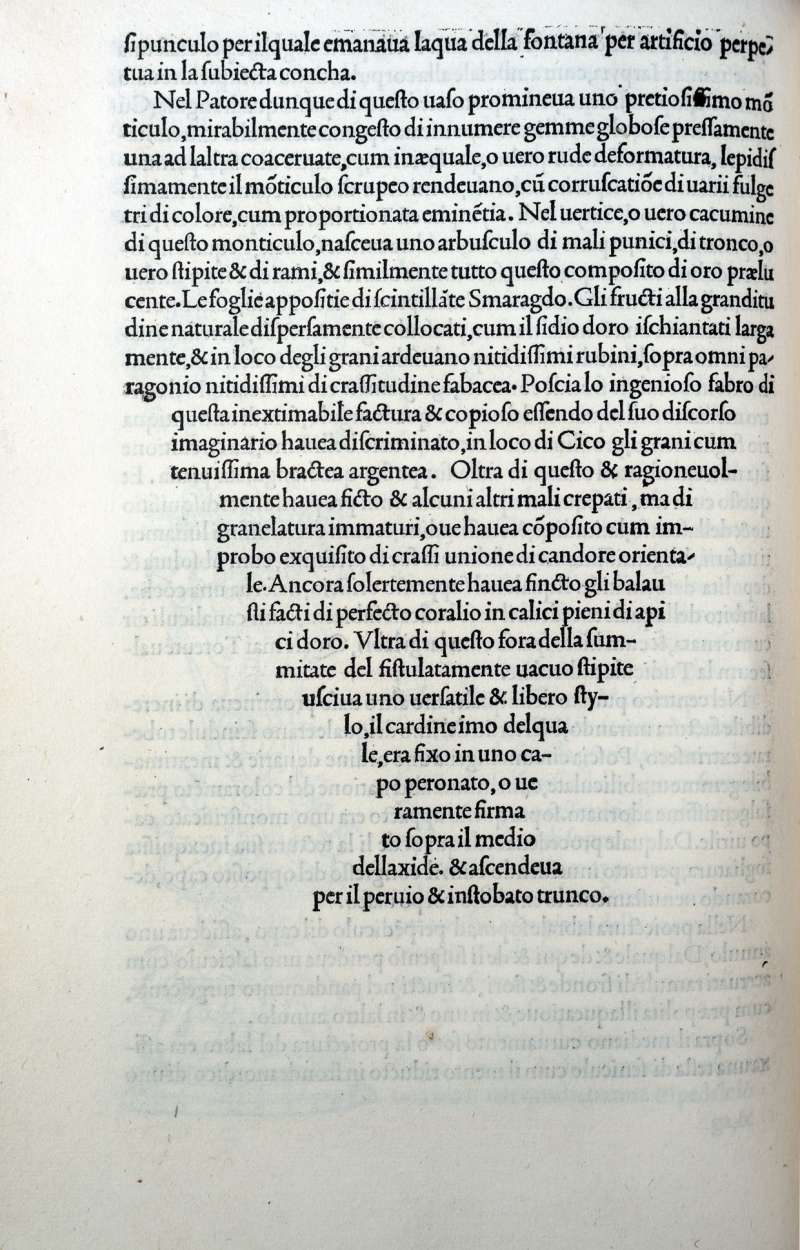 ſipunculo per ilquale emanaua laqua della fontana per artificio perpe
tua in la ſubiecta concha.
Nel Patore dunque di queſto uaſo promineua uno pretioſiſſimo mõ
ticulo, mirabilmente congeſto di innumere gemme globoſe preſſamente
una ad laltra coaceruate, cum inæquale, o uero rude deformatura, lepidiſ
ſimamente il mõticulo ſcrupeo rendeuano, cũ corruſcatiõe di uarii fulge
tri di colore, cum proportionata eminẽtia. Nel uertice, o uero cacumine
di queſto monticulo, naſceua uno arbuſculo di mali punici, di tronco, o
uero ſtipite & di rami, & ſimilmente tutto queſto compoſito di oro prælu
cente. Le foglie appoſitie di ſcintillãte Smaragdo. Gli fructi alla granditu
dine naturale diſperſamente collocati, cum il ſidio doro iſchiantati larga
mente, & in loco degli grani ardeuano nitidiſſimi rubini, ſopra omni pa-
ragonio nitidiſſimi di craſſitudine fabacea. Poſcia lo ingenioſo fabro di
queſta inextimabile factura & copioſo eſſendo del ſuo diſcorſo
imaginario hauea diſcriminato, in loco di Cico gli grani cum
tenuiſſima bractea argentea. Oltra di queſto & ragioneuol-
mente hauea ficto & alcuni altri mali crepati, ma di
granelatura immaturi, oue hauea cõpoſito cum im-
probo exquiſito di craſſi unione di candore orienta-
le. Ancora ſolertemente hauea fincto gli balau
ſti facti di perfecto coralio in calici pieni di api
ci doro. Vltra di queſto fora della ſum-
mitate del fiſtulatamente uacuo ſtipite
uſciua uno uerſatile & libero ſty-
lo, il cardine imo delqua
le, era fixo in uno ca-
po peronato, o ue
ramente firma
to ſopra il medio
dellaxide. & aſcendeua
per il peruio & inſtobato trunco.